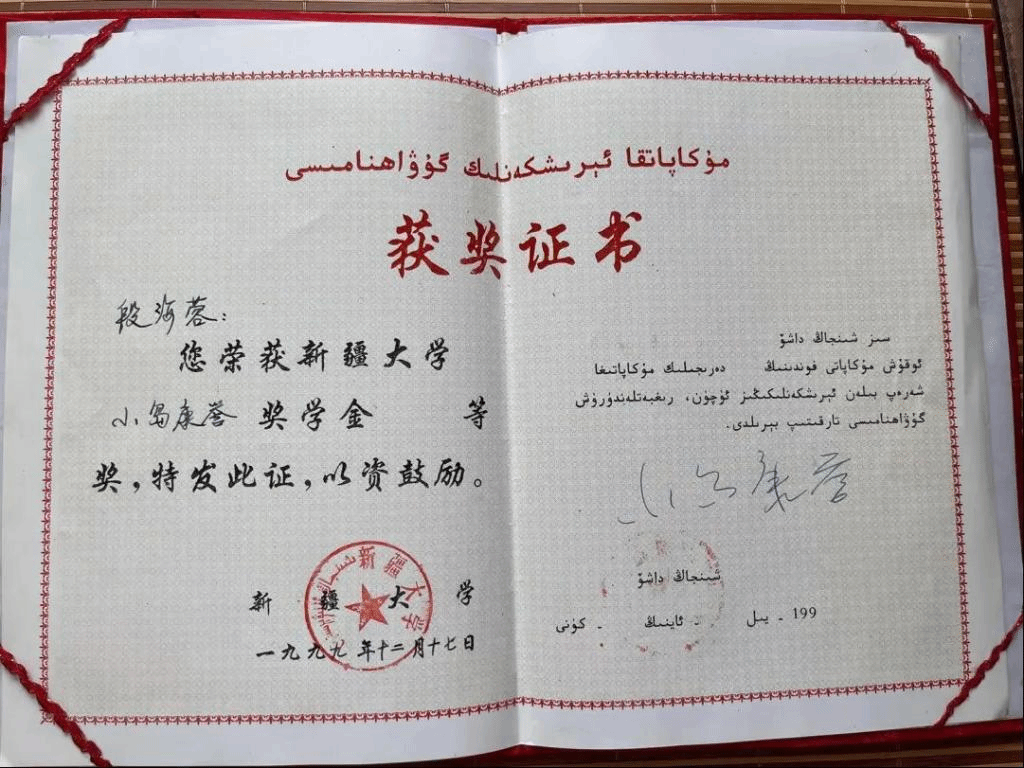 مۇكاپاتقا ئېرىشكەنلىك گۇۋاھنامىسى
获奖证书
段海蓉：
您荣获新疆大学
小岛康誉 奖学金 等
奖，特发此证，以资鼓励。
新疆大学
新 疆 大 学
一九九九年十二月十七日
سىز شىنجاڭ داشۆ
ئوقۇش مۇكاپاتى فوندىنىڭ دەرىجىلىك مۇكاپاتىغا
شەرەپ بىلەن ئېرىشكەنلىكىڭىز ئۈچۈن، رىغبەتلەندۈرۈش
گۇۋاھنامىسى تارقىتىپ بېرىلدى.
小岛康誉
شىنجاڭ داشۆ
199 - يىل - ئاينىڭ - كۈنى